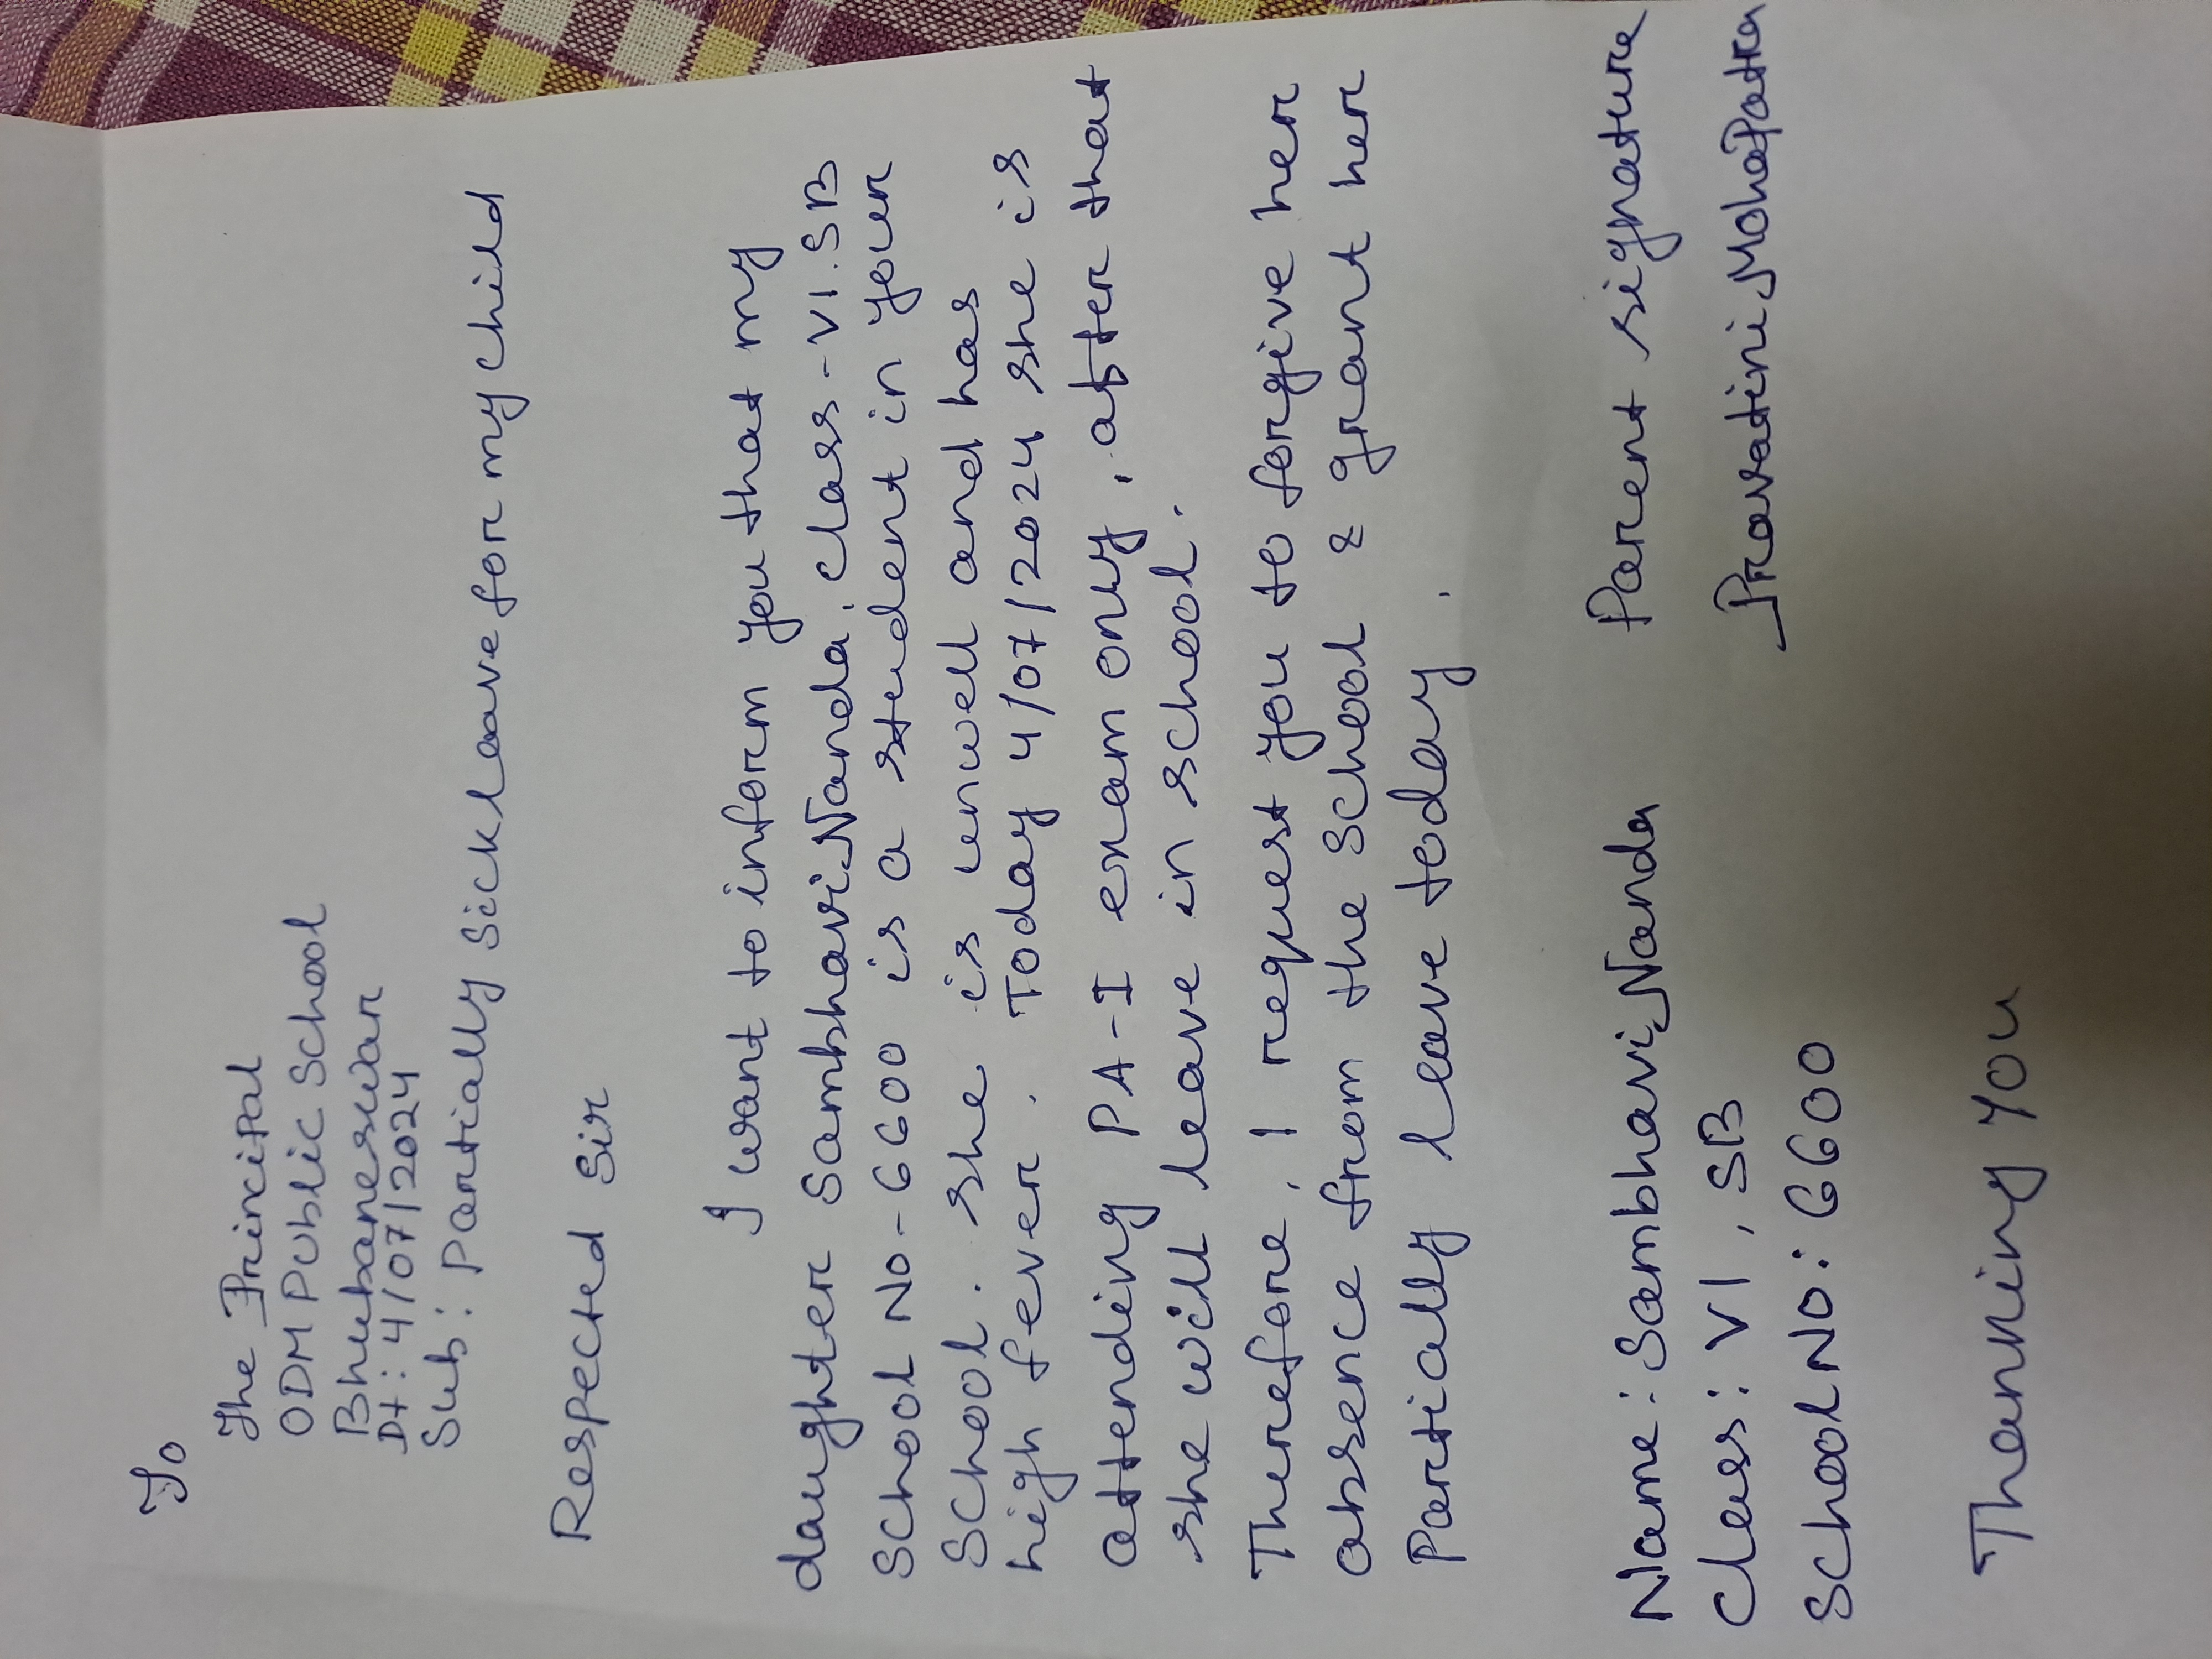 To
The Principal
ODM Public School
Bhubaneswar
Dt: 4/07/2024
Sub: Partially Sick leave for my child
Respected Sir
I want to inform you that my
daughter Sambhavi Nanda, class-VI.SB
School No-6600 is a student in your
School. She is unwell and has
high fever. Today 4/07/2024 she is
attending PA-I exam only, after that
she will leave in school.
Therefore, I request you to forgive her
absence from the School & grant her
Partially leave today.
Name: Sambhavi Nanda Parent signature
Class: VI, SB Pravatini Mohapatra
School No: 6600
Thanking You